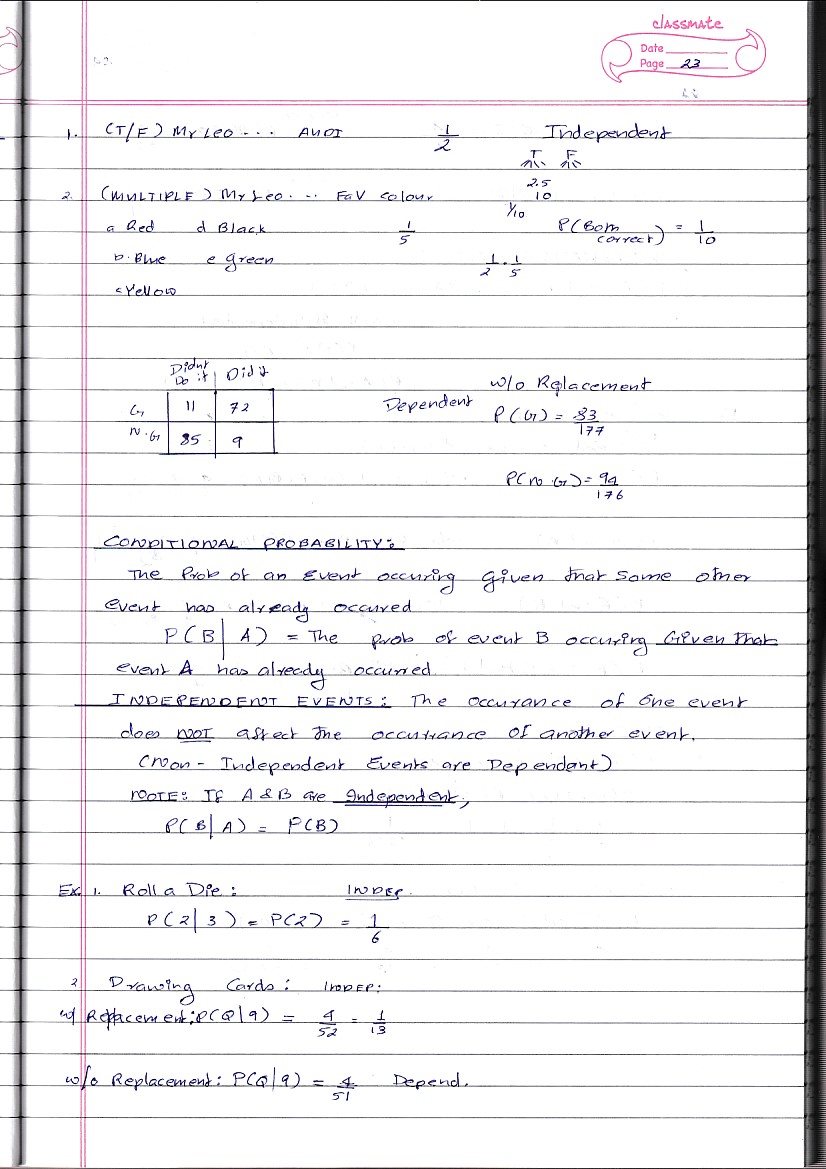 classmate
Date
Page 23
1. (T/F) Mr Leo ... AUDI 1/2 Independent
T F
2.5
10
2. (MULTIPLE) Mr Leo ... Fav colour 1/10
a Red d Black 1/5 P(Both correct) = 1/10
b. Blue e green 1/2 . 1/5
c Yellow
Didnt Do it Did it
w/o Replacement
G 11 72 Dependent P(G) = 83/177
N.G 85 9
P(no G) = 94/176
CONDITIONAL PROBABILITY:
The Prob of an Event occuring Given that some other
event has already occured
P(B|A) = The prob of event B occuring Given that
event A has already occurred.
INDEPENDENT EVENTS: The occurance of one event
does NOT affect the occurrance of another event.
(Non - Independent Events are Dependent)
NOTE: If A & B are Independent,
P(B|A) = P(B)
Ex. 1. Roll a Die: INDEP.
P(2|3) = P(2) = 1/6
2 Drawing Cards: INDEP:
w/ Replacement: P(Q|9) = 4/52 = 1/13
w/o Replacement: P(Q|9) = 4/51 Depend.